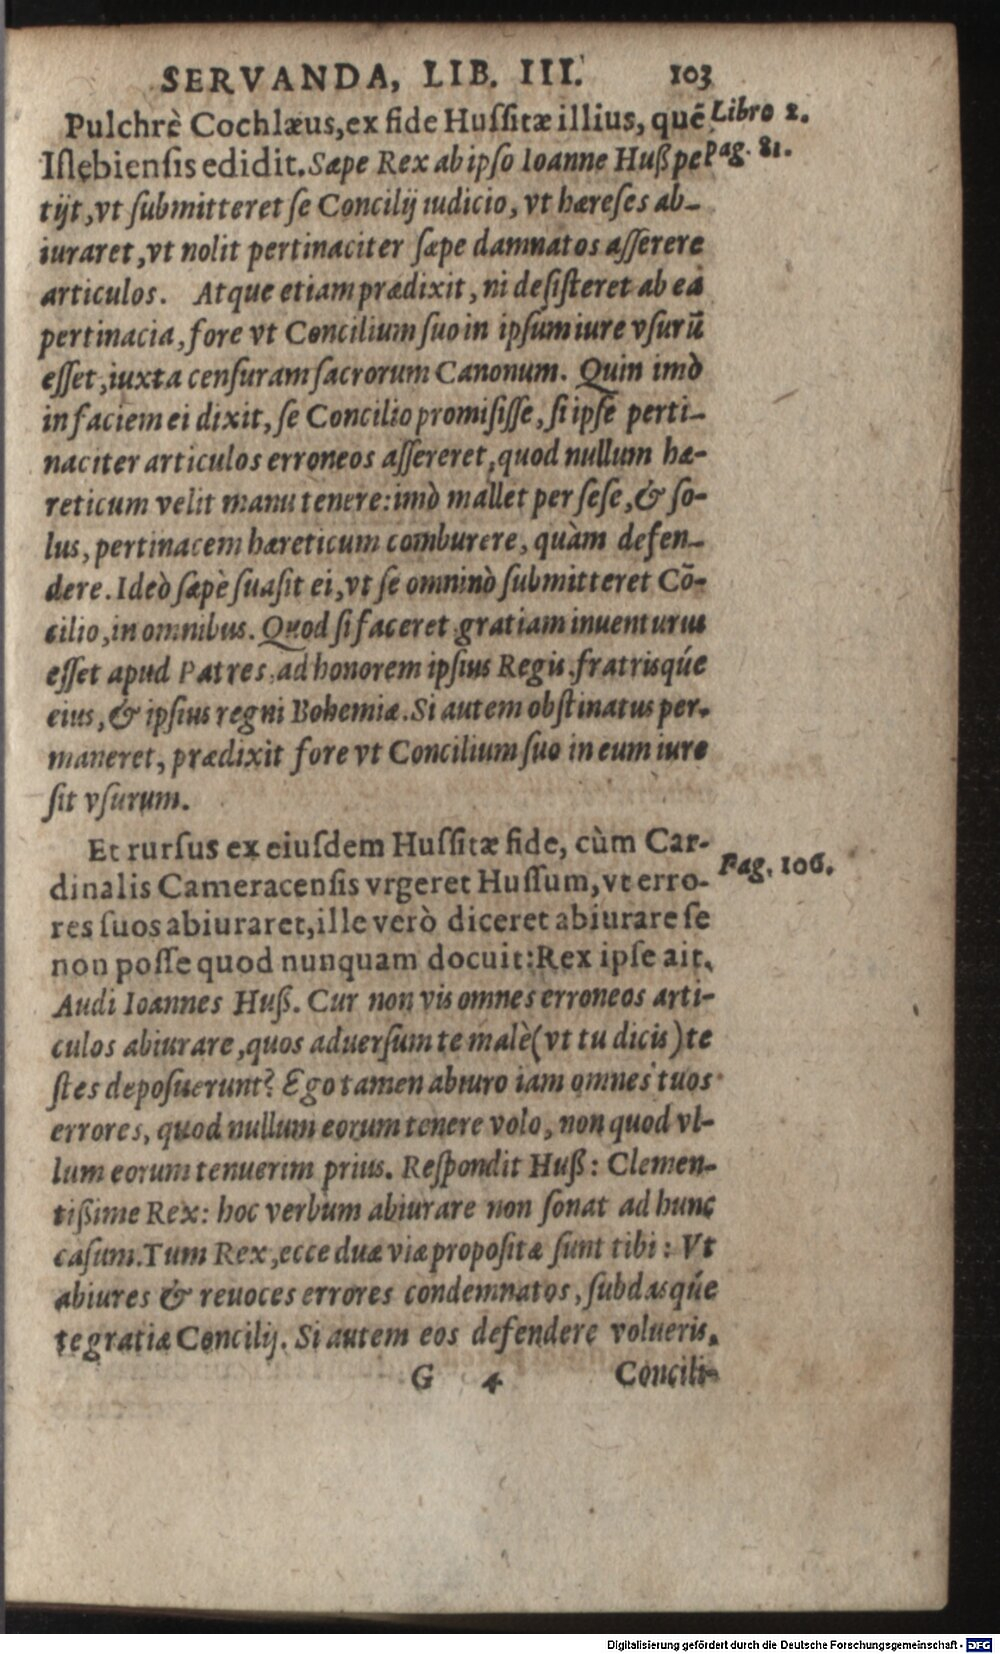 SERVANDA, LIB. III. 103
Pulchrè Cochlæus, ex fide Hussitæ illius, quē Libro 2.
Islebiensis edidit. Sæpe Rex ab ipso Ioanne Huß pe Pag. 81.
tijt, vt submitteret se Concilij iudicio, vt hæreses ab-
iuraret, vt nolit pertinaciter sæpe damnatos asserere
articulos. Atque etiam prædixit, ni desisteret ab ea
pertinacia, fore vt Concilium suo in ipsum iure vsurū
esset, iuxta censuram sacrorum Canonum. Quin imò
in faciem ei dixit, se Concilio promisisse, si ipse perti-
naciter articulos erroneos assereret, quod nullum hæ-
reticum velit manu tenere: imò mallet per sese, & so-
lus, pertinacem hæreticum comburere, quàm defen-
dere. Ideò sæpè suasit ei, vt se omninò submitteret Cō-
cilio, in omnibus. Quod si faceret gratiam inuenturus
esset apud Patres, ad honorem ipsius Regis, fratrisqúe
eius, & ipsius regni Bohemiæ. Si autem obstinatus per-
maneret, prædixit fore vt Concilium suo in eum iure
sit vsurum.
Et rursus ex eiusdem Hussitæ fide, cùm Car-
dinalis Cameracensis vrgeret Hussum, vt erro- Pag. 106.
res suos abiuraret, ille verò diceret abiurare se
non posse quod nunquam docuit: Rex ipse ait.
Audi Ioannes Huß. Cur non vis omnes erroneos arti-
culos abiurare, quos aduersum te malè (vt tu dicis) te
stes deposuerunt? Ego tamen abiuro iam omnes tuos
errores, quod nullum eorum tenere volo, non quod vl-
lum eorum tenuerim prius. Respondit Huß: Clemen-
tißime Rex: hoc verbum abiurare non sonat ad hunc
casum. Tum Rex, ecce duæ viæ propositæ sunt tibi: Vt
abiures & reuoces errores condemnatos, subdasqúe
te gratiæ Concilij. Si autem eos defendere volueris,
G 4 Concili-
Digitalisierung gefördert durch die Deutsche Forschungsgemeinschaft - DFG